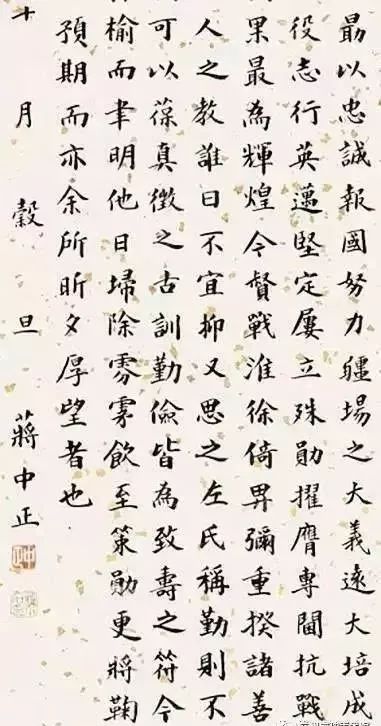 勗以忠誠報國努力疆場之大義遠大培成
役志行英邁堅定屢立殊勛擢膺專閫抗戰
果最為輝煌今督戰淮徐倚畀彌重揆諸善
人之教誰曰不宜抑又思之左氏稱勤則不
可以葆真徵之古訓勤儉皆為致壽之符今
榆而聿明他日埽除雰雺飲至策勛更將鞠
預期而亦余所昕夕厚望者也
十月穀旦蔣中正